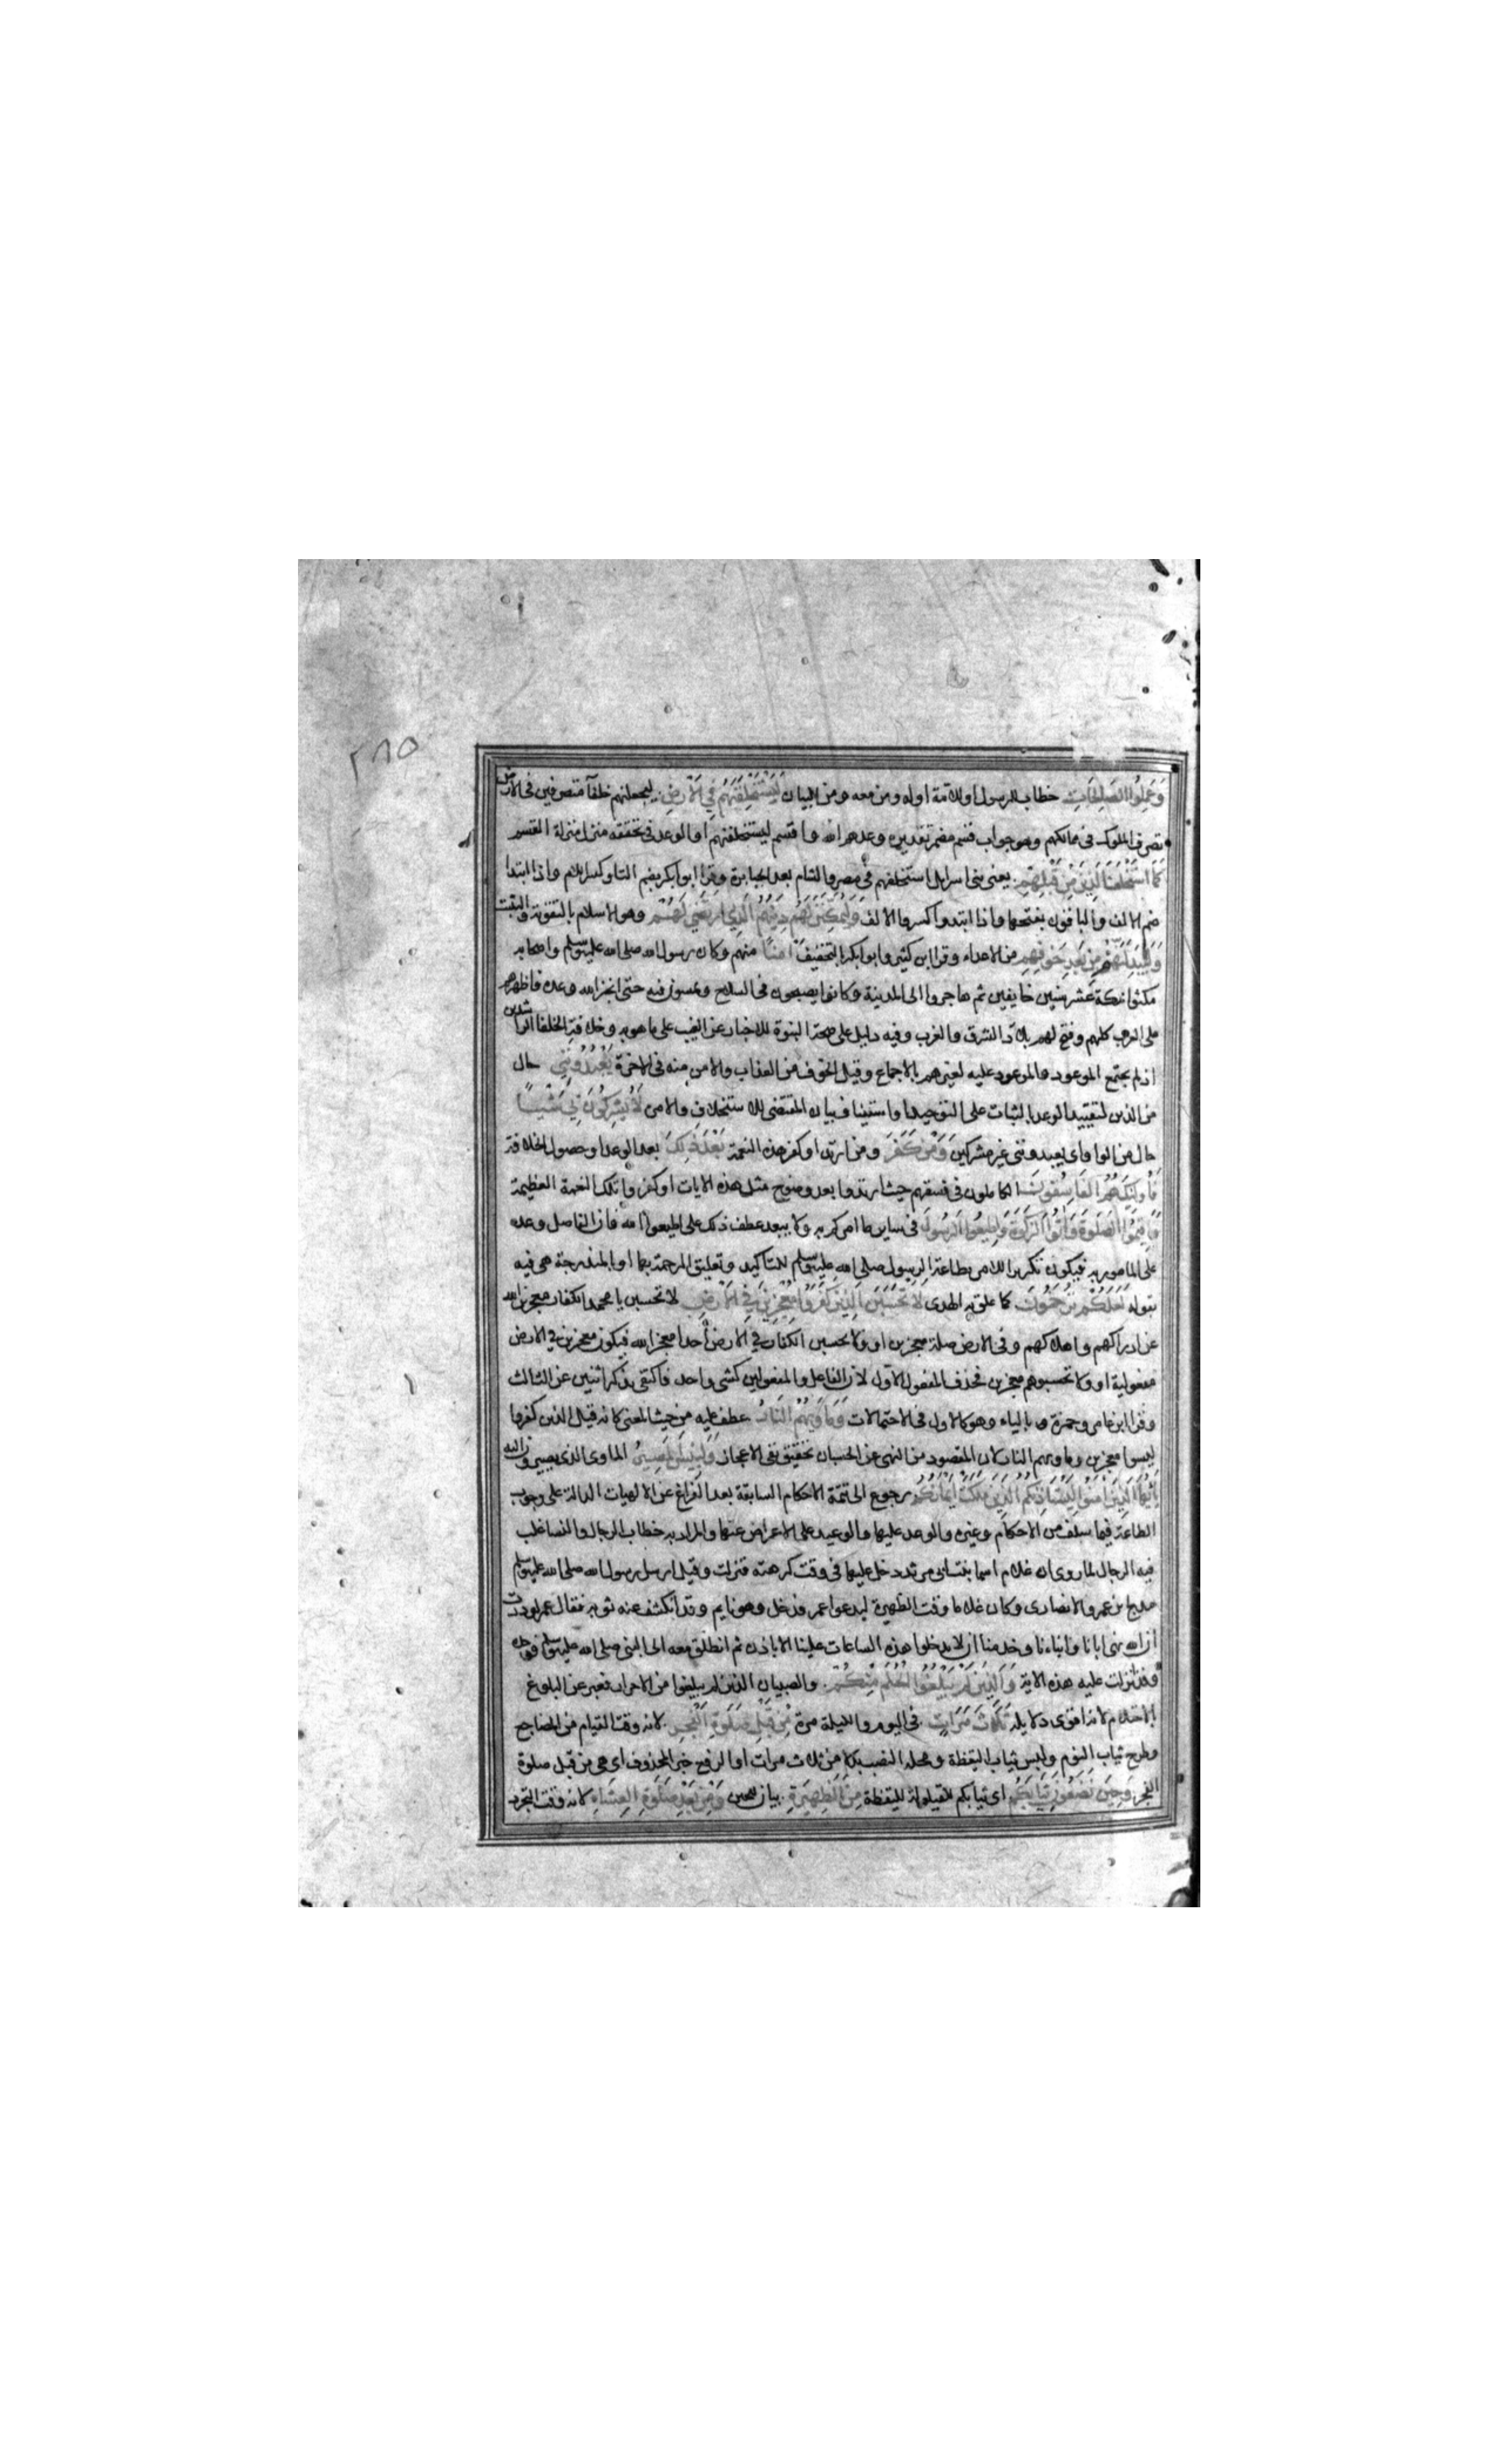 ٢٨٥
وَعَمِلُوا الصَّالِحَاتِ خطاب للرسول وللامة اوله ومن معه ومن للبيان لَيَسْتَخْلِفَنَّهُمْ فِي الْأَرْضِ ليجعلنهم خلفآ متصرفين فى الارض
تصرف الملوك فى ممالكهم وهو جواب قسم مضمر تقديره وعدهم الله واقسم ليستخلفنهم او الوعد فى تحققه منزل منزلة القسم
كَمَا اسْتَخْلَفَ الَّذِينَ مِنْ قَبْلِهِمْ يعنى بنى اسرايل استخلفهم فى مصر والشام بعد الجبابرة وقرا ابو بكر بضم التا وكسر اللام واذا ابتدا
ضم الالف والباقون بفتحهما واذا ابتدوا كسروا الالف وَلَيُمَكِّنَنَّ لَهُمْ دِينَهُمُ الَّذِي ارْتَضَى لَهُمْ وهو الاسلام بالتقوية والتثبت
وَلَيُبَدِّلَنَّهُمْ مِنْ بَعْدِ خَوْفِهِمْ من الاعداء وقرا ابن كثير وابو بكر بالتخفيف أَمْنًا منهم وكان رسول الله صلى الله عليه وسلم واصحابه
مكثوا بمكة عشر سنين خايفين ثم هاجروا الى المدينة وكانوا يصبحون فى السلاح ويمسون فيه حتى انجز الله وعده فاظهرهم
على العرب كلهم وفتح لهم بلاد الشرق والغرب وفيه دليل على صحة النبوة للاخبار عن الغيب على ما هو به وخلافة الخلفا الراشدين
اذ لم يجتمع الموعود والموعود عليه لغيرهم بالاجماع وقيل الخوف من العذاب والامن منه فى الاخرة يَعْبُدُونَنِي حال
من الذين لتقييد الوعد بالثبات على التوحيد او استيناف ببيان المقتضى للاستخلاف والامن لَا يُشْرِكُونَ بِي شَيْئًا
حال من الواو اى يعبدوننى غير مشركين وَمَنْ كَفَرَ ومن ارتد او كفر هذه النعمة بَعْدَ ذَلِكَ بعد الوعد او حصول الخلافة
فَأُولَئِكَ هُمُ الْفَاسِقُونَ الكاملون فى فسقهم حيث ارتدوا بعد وضوح مثل هذه الايات او كفروا تلك النعمة العظيمة
وَأَقِيمُوا الصَّلَوةَ وَآتُوا الزَّكَوةَ وَأَطِيعُوا الرَّسُولَ فى ساير ما امركم به ولا يبعد عطف ذلك على اطيعوا الله فان الفاصل وعد
على المامور به فيكون تكرير الامر بطاعة الرسول صلى الله عليه وسلم للتاكيد وتعليق الرحمة بها او بالمندرجة هى فيه
بقوله لَعَلَّكُمْ تُرْحَمُونَ كما علق به الهدى لَا تَحْسَبَنَّ الَّذِينَ كَفَرُوا مُعْجِزِينَ فِي الْأَرْضِ لا تحسبن يا محمد الكفار معجزين الله
عن ادراكهم واهلاكهم وفى الارض صلة معجزين او ولا تحسبن الكفار فى الارض احدا معجز الله فيكون معجزين فى الارض
مفعوليه او ولا تحسبوهم معجزين فحذف المفعول الاول لان الفاعل والمفعولين كشى واحد فاكتفى بذكر اثنين عن الثالث
وقرا ابن عامر وحمزة بالياء وهو كالاول فى الاحتمالات وَمَأْوَاهُمُ النَّارُ عطف عليه من حيث المعنى كانه قيل الذين كفروا
ليسوا معجزين وماويهم النار لان المقصود من النهى عن الحسبان تحقيق نفى الاعجاز وَلَبِئْسَ الْمَصِيرُ الماوى الذى يصيرون اليه
يَأَيُّهَا الَّذِينَ آمَنُوا لِيَسْتَأْذِنْكُمُ الَّذِينَ مَلَكَتْ أَيْمَانُكُمْ رجوع الى تتمة الاحكام السابقة بعد الفراغ عن الالهيات الدالة على وجوب
الطاعة فيما سلف من الاحكام وغيره والوعد عليها والوعيد على الاعراض عنها والمراد به خطاب الرجال والنسا غلب
فيه الرجال لما روى ان غلام اسما بنت ابى مرثد دخل عليها فى وقت كرهته فنزلت وقيل ارسل رسول الله صلى الله عليه وسلم
مدلج بن عمرو الانصارى وكان غلاما وقت الظهيرة ليدعوا عمر فدخل وهو نايم وقد انكشف عنه ثوبه فقال عمر لوددت
ان الله نهى ابانا وابناءنا وخدمنا ان لا يدخلوا هذه الساعات علينا الا باذن ثم انطلق معه الى النبى صلى الله عليه وسلم فوجده
وقد نزلت عليه هذه الاية وَالَّذِينَ لَمْ يَبْلُغُوا الْحُلُمَ مِنْكُمْ والصبيان الذين لم يبلغوا من الاحرار فعبر عن البلوغ
بالاحتلام لانه اقوى دلايله ثَلَاثَ مَرَّاتٍ فى اليوم والليلة مرة مِنْ قَبْلِ صَلَوةِ الْفَجْرِ لانه وقت القيام من المضاجع
وطرح ثياب النوم ولبس ثياب اليقظة ومحله النصب بدلا من ثلاث مرات او الرفع خبر المحذوف اى هى من قبل صلوة
الفجر وَحِينَ تَضَعُونَ ثِيَابَكُمْ اى ثيابكم للقيلولة لليقظة مِنَ الظَّهِيرَةِ بيان للحين وَمِنْ بَعْدِ صَلَوةِ الْعِشَاءِ لانه وقت التجرد